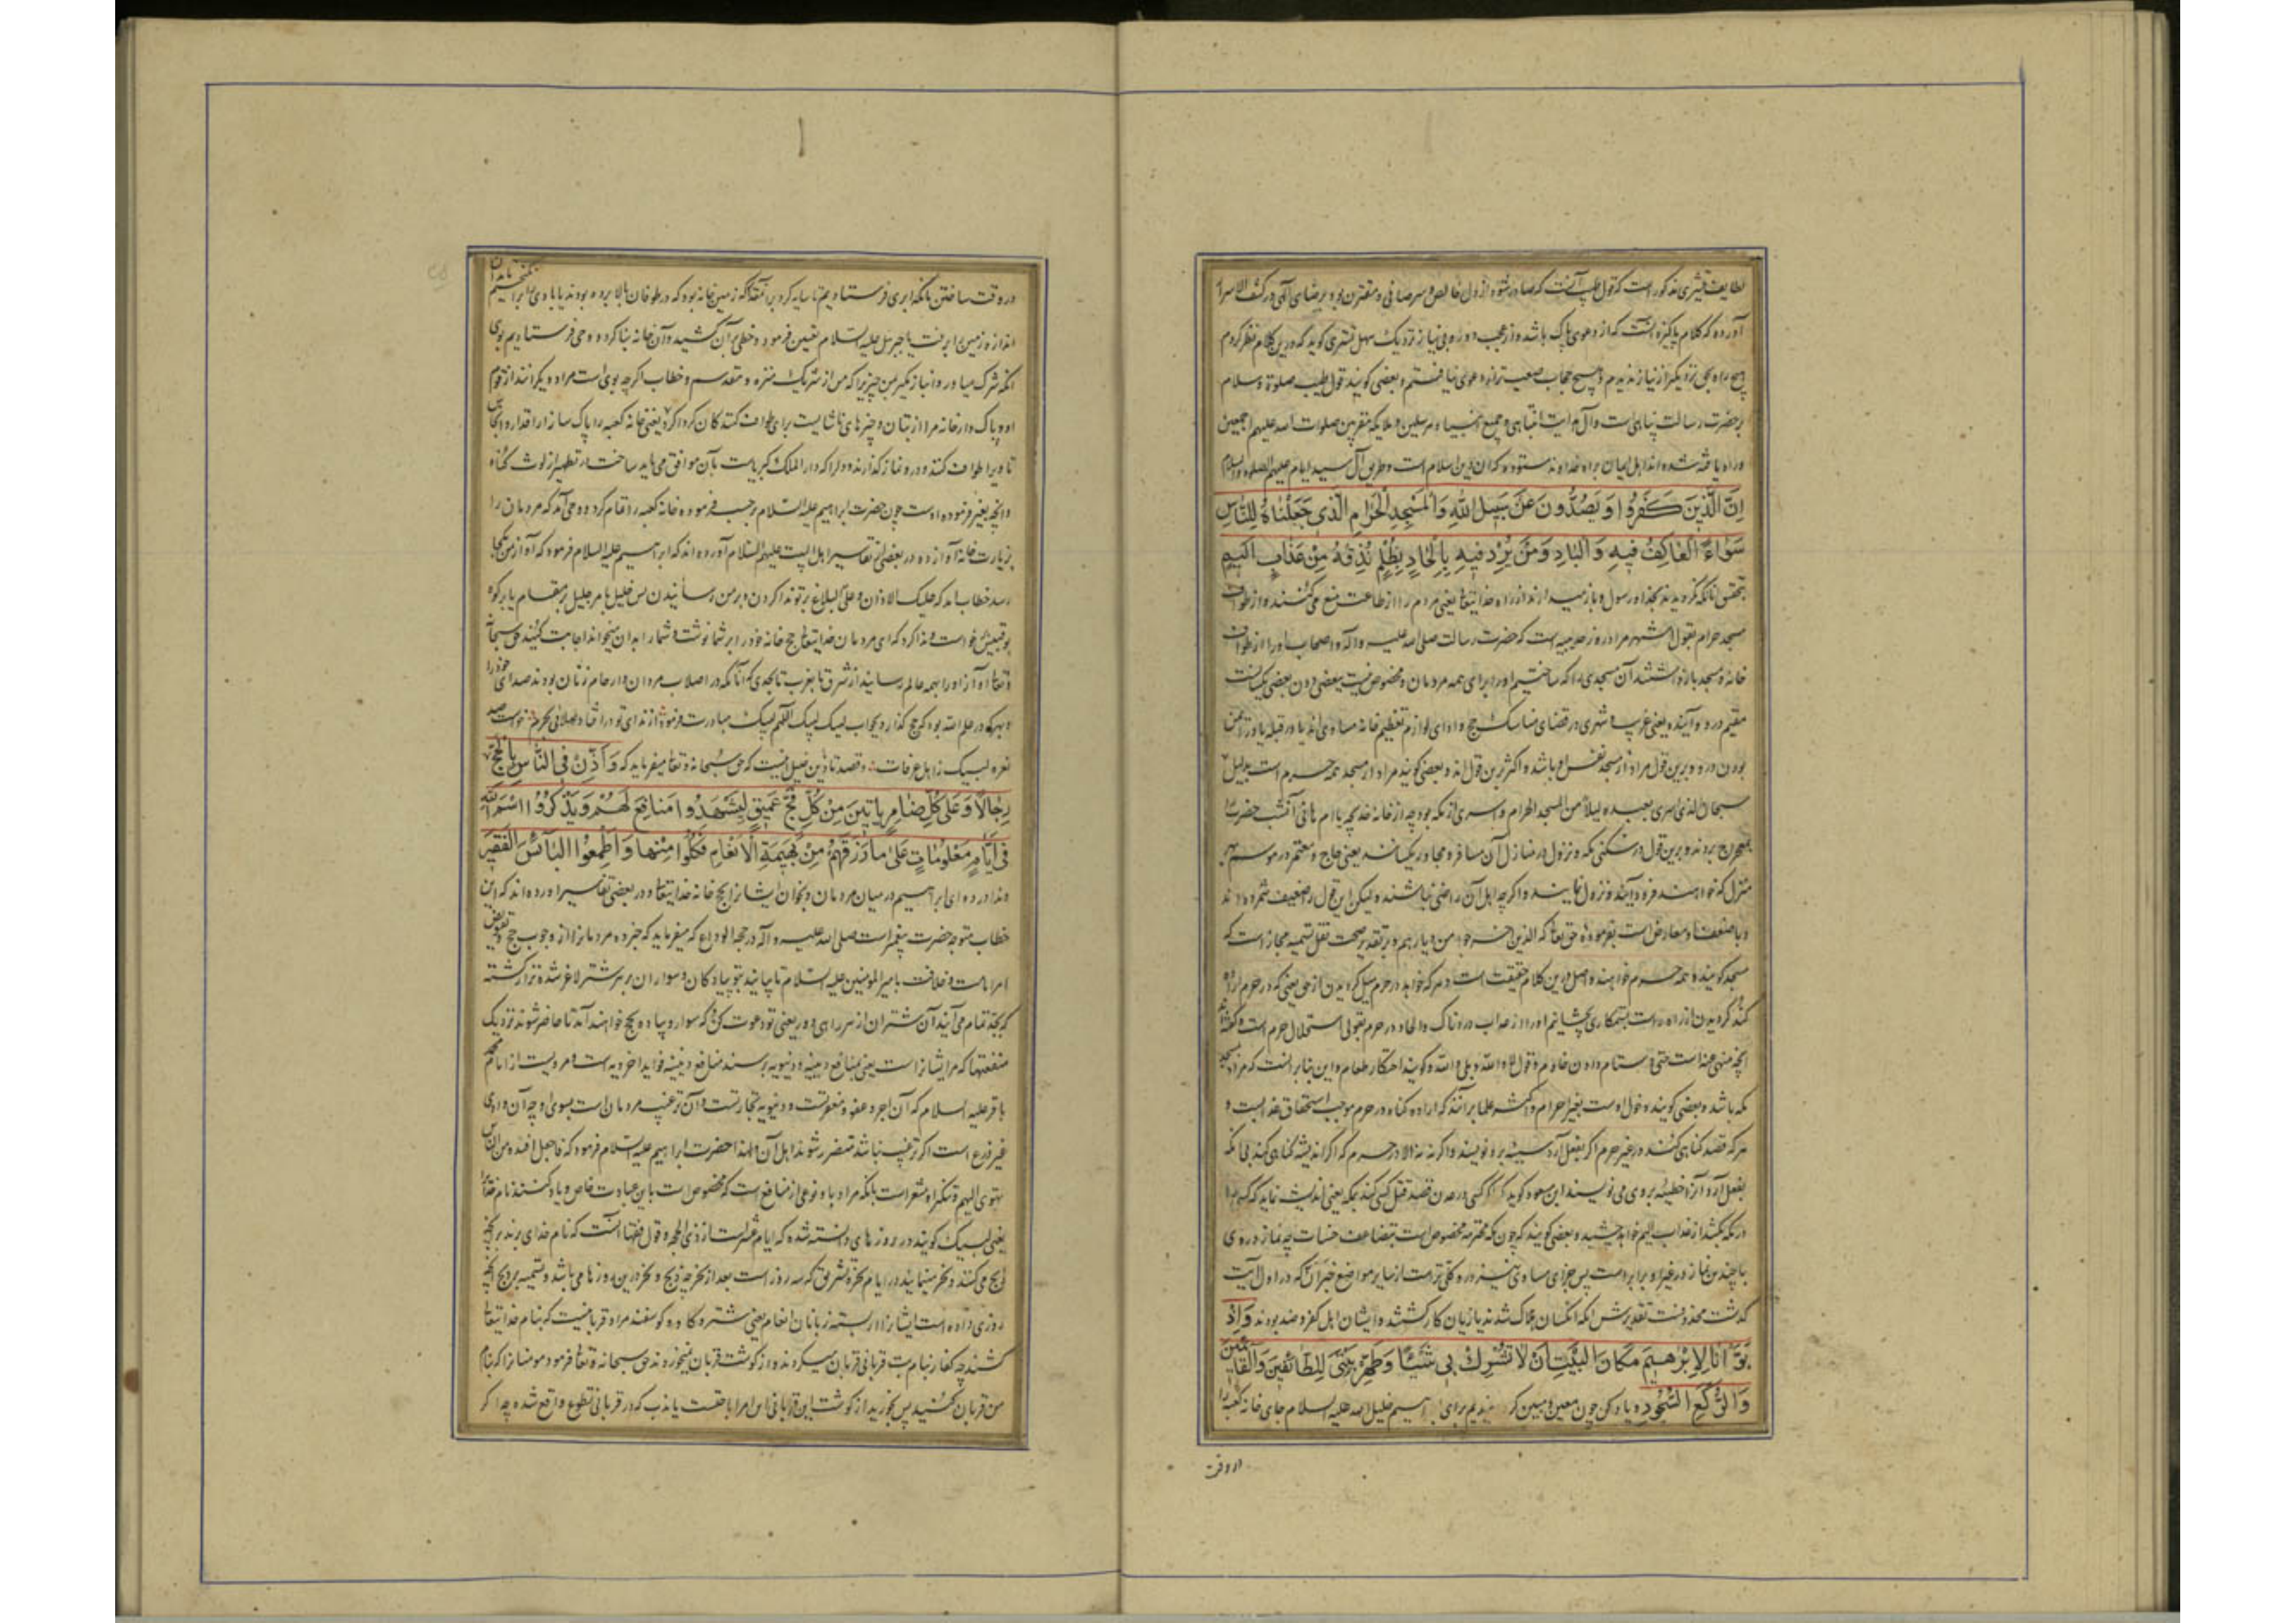 لطایف قشیری مذکور است که قول طیب آنست که صادر شود از دل خالص و سر صافی و مقترن بود برضای الهی و در کشف الاسرار
آورده که کلام پاکیزه آنست که از دعوی پاک باشد و از عجب دور و به نیاز نزدیک سهل تستری گوید که درین کلام نظر کردم
هیچ راه بحق نزدیکتر از نیاز ندیدم و هیچ حجاب صعبتر از دعوی نیافتم و بعضی گویند قول طیب صلوة و سلام
بر حضرت رسالت پناهی است و آل و جمیع انبیا و مرسلین و ملایکه مقربین صلوات الله علیهم اجمعین
و راه یافته شده اند اهل ایمان براه خداوند ستوده که آن دین اسلام است و طریق آل سید انام علیهم الصلوة والسلام
اِنَّ الَّذِینَ کَفَرُوا وَیَصُدُّونَ عَنْ سَبِیلِ اللهِ وَالْمَسْجِدِ الْحَرَامِ الَّذِی جَعَلْنَاهُ لِلنَّاسِ
سَوَاءً الْعَاکِفُ فِیهِ وَالْبَادِ وَمَنْ یُرِدْ فِیهِ بِاِلْحَادٍ بِظُلْمٍ نُذِقْهُ مِنْ عَذَابٍ اَلِیمٍ
بتحقیق آنانکه نگرویدند بخدا و رسول و باز میدارند از راه خدایتعالی یعنی مردم را از طاعت منع می کنند و از طواف
مسجد حرام بقول اشهر مراد روز حدیبیه است که حضرت رسالت صلی الله علیه و آله و اصحاب او را از طواف
خانه و مسجد بازداشتند آن مسجدی را که ساختیم او را برای همه مردمان و مخصوص نیست ببعضی دون بعضی یکسانست
مقیم درو و آینده یعنی غریب و شهری در قضای مناسک حج و ادای لوازم تعظیم خانه مساوی اند یا در قبله یا در ایمن
بودن درو و برین قول مراد از مسجد نفس او باشد و اکثر برین قول اند و بعضی گویند مراد از مسجد همه حرم است بدلیل
سبحان الذی اسری بعبده لیلا من المسجد الحرام و اسری از مکه بود چه از خانه خدیجه یا ام هانی آنشب حضرت را
بمعراج بردند و برین قول در سکنی مکه و نزول در منازل آن مسافر و مجاور یکسانند یعنی حاج و معتمر در موسم بهر
منزل که خواهند فرود آیند و نزول نمایند و اگرچه اهل آن راضی نباشند و لیکن این قول را ضعیف شمرده اند
و با ضعف او معارض است بفرموده حق تعالی که الذین اخرجوا من دیارهم و بر تقدیر صحت نقل تسمیه مجاز است که
مسجد گویند و همه حرم خواهند و اصل درین کلام حقیقت است و هر که خواهد در حرم میل کردن از حق یعنی که در حرم اراده
کند گردیدن از راه راست بستمکاری بچشانیم او را از عذاب دردناک و الحاد در حرم بقولی استحلال حرم است و گفته اند
آنچه منهی عنه است حتی دشنام دادن خادم و قول لا والله و بلی والله و گویند احتکار طعام و این بنابر آنست که مراد مسجد
مکه باشد و بعضی گویند دخول اوست بغیر احرام و اکثر علما برآنند که اراده گناه در حرم موجب استحقاق عذابست و
هر که قصد گناهی کند در غیر حرم اگر بفعل آرد سیئه برو نویسند و اگر نه نه الا در حرم که اگر اندیشه گناهی کند بی آنکه
بفعل آرد آنرا خطیئه بر وی می نویسند ابن مسعود گوید که اگر کسی در عدن قصد قتل کسی کند بمکه یعنی اندیشه نماید که کسی را
در مکه بکشد از عذاب الیم خواهد چشید و بعضی گویند که چون مکه محترمه مخصوص است بتضاعف حسنات چه نماز در وی
با چندین نماز در غیر او برابر است پس جزای مساوی نیز درو کلی تر است از سایر مواضع خبر ان که در اول آیت
گذشت محذوفست تقدیرش آنکه آنکسان هلاک شدند یا زیان کار گشتند و ایشان اهل کفر و صد بودند وَاِذْ
بَوَّأْنَا لِاِبْرٰهِیمَ مَکَانَ الْبَیْتِ اَنْ لَا تُشْرِکْ بِی شَیْئًا وَطَهِّرْ بَیْتِیَ لِلطَّائِفِینَ وَالْقَائِمِینَ
وَالرُّکَّعِ السُّجُودِ و یاد کن چون معین و مبین گردانیدیم برای ابراهیم خلیل الله علیه السلام جای خانه کعبه را
در وقت
در وقت ساختن بآنکه ابری فرستادیم تا سایه کرد بر آنمقدار که زمین خانه بود که در طوفان بالا برده بودند یا بادی تا ابراهیم
اندازه زمین دریافت یا جبرئیل علیه السلام تعیین فرمود و خطی بر آن کشید و آن خانه بنا کرد و وحی فرستادیم بوی
آنکه شرک میاور و انباز مگیر بمن چیزیرا که من از شریک منزه و مقدسم و خطاب اگرچه بوی است مراد دیگرانند از قوم
او و پاک دار خانه مرا از بتان و چیزهای ناشایست برای طواف کنندگان گرداگرد یعنی خانه کعبه را پاک ساز از اقذار و انجاس
تا ویرا طواف کنند و درو نماز گذارند و دلرا که دارالملک کبریاست بآن موافق می باید ساخت در تطهیر از لوث گناه
و آنچه بغیر فرموده اوست چون حضرت ابراهیم علیه السلام برحسب فرموده خانه کعبه را تمام کرد وحی آمد که مردمان را
بزیارت خانه آواز ده در بعضی از تفاسیر اهل البیت علیهم السلام آورده اند که ابراهیم علیه السلام فرمود که آواز من بکجا
رسد خطاب آمد که علیک الاذان و علی البلاغ بر تو ندا کردن و بر من رسانیدن پس خلیل بامر جلیل بر مقام یا بر کوه
بوقبیس خواست و ندا کرد که ای مردمان خدایتعالی حج خانه خود را بر شما نوشت و شما را بدان میخواند اجابت کنید حق سبحانه
و تعالی آواز او را بهمه عالم رسانید از شرق تا بغرب تا بحدی که آنانکه در اصلاب مردان و ارحام زنان بودند صدای خود را
و هر که در علم الله بود که حج گذارد بجواب لبیک لبیک اللهم لبیک مبادرت فرمود از ندای تو در افتاد صدائی بحرم خواست صد
نعره لبیک ز اهل عرفات و قصه تاذین خلیل اینست که حق سبحانه و تعالی میفرماید که وَاَذِّنْ فِی النَّاسِ بِالْحَجِّ
رِجَالًا وَعَلَی کُلِّ ضَامِرٍ یَاْتِینَ مِنْ کُلِّ فَجٍّ عَمِیقٍ لِیَشْهَدُوا مَنَافِعَ لَهُمْ وَیَذْکُرُوا اسْمَ اللهِ
فِی اَیَّامٍ مَعْلُومَاتٍ عَلَی مَا رَزَقَهُمْ مِنْ بَهِیمَةِ الْاَنْعَامِ فَکُلُوا مِنْهَا وَاَطْعِمُوا الْبَائِسَ الْفَقِیرَ
و ندا در ده ای ابراهیم در میان مردمان و بخوان ایشانرا بحج خانه خدایتعالی و در بعضی تفاسیر آورده اند که این
خطاب متوجه حضرت پیغمبر است صلی الله علیه و آله در حجة الوداع که میفرماید که خبر ده مردمانرا از وجوب حج و تفویض
امر امامت و خلافت بامیرالمؤمنین علیه السلام تا بیایند بتو پیادگان و سواران بر هر شتر لاغر شده نزار گشته
که بجد تمام می آیند آن شتران از هر راهی دور یعنی تو دعوت کن که سوار و پیاده بحج خواهند آمد تا حاضر شوند نزدیک
منفعتها که مر ایشانراست یعنی بمنافع دینیه و دنیویه برسند منافع دینیه فواید اخرویه است و مرویست از امام محمد
باقر علیه السلام که آن اجر و عفو و مغفرتست و دنیویه تجارتست و آن ترغیب مردمان است بسوی او چه آن وادی
غیر ذرع است اگر ترغیب نباشد متضرر شوند اهل آن و لهذا حضرت ابراهیم علیه السلام فرمود که فاجعل افئدة من الناس
تهوی الیهم و تنکیر او مشعر است بآنکه مراد باو نوعی از منافع است که مخصوص است باین عبادت خاص و یاد کنند نام خدا را
یعنی لبیک گویند در روزهای دانسته شده که ایام عشر است از ذی الحجه و قول فقها آنست که نام خدای برند بر آنچه
ذبح می کنند و نحر مینمایند در ایام نحر و تشریق که سه روز است بعد از نحر چه ذبح و نحر درین روزها می باشد و تسمیه بر ذبح آنچه
روزی داده است ایشانرا از بسته زبانان انعام یعنی شتر و گاو و گوسفند مراد قربانیست که بنام خدایتعالی
کشند چه کفار بنام بت قربانی قربان میکردند و از گوشت قربان نمیخوردند حق سبحانه و تعالی فرمود مومنانرا که بنام
من قربان کنید پس بخورید از گوشت این قربانی این امر اباحتست یا ندب که در قربانی تطوع واقع شده چه اگر